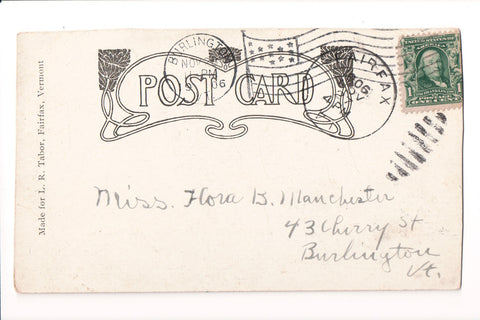 Made for L. R. Tabor, Fairfax, Vermont
BURLINGTON
NOV
PM
06
FAIRFAX
06
NOV
POST CARD
Miss. Flora B. Manchester
43 Cherry St
Burlington
Vt.